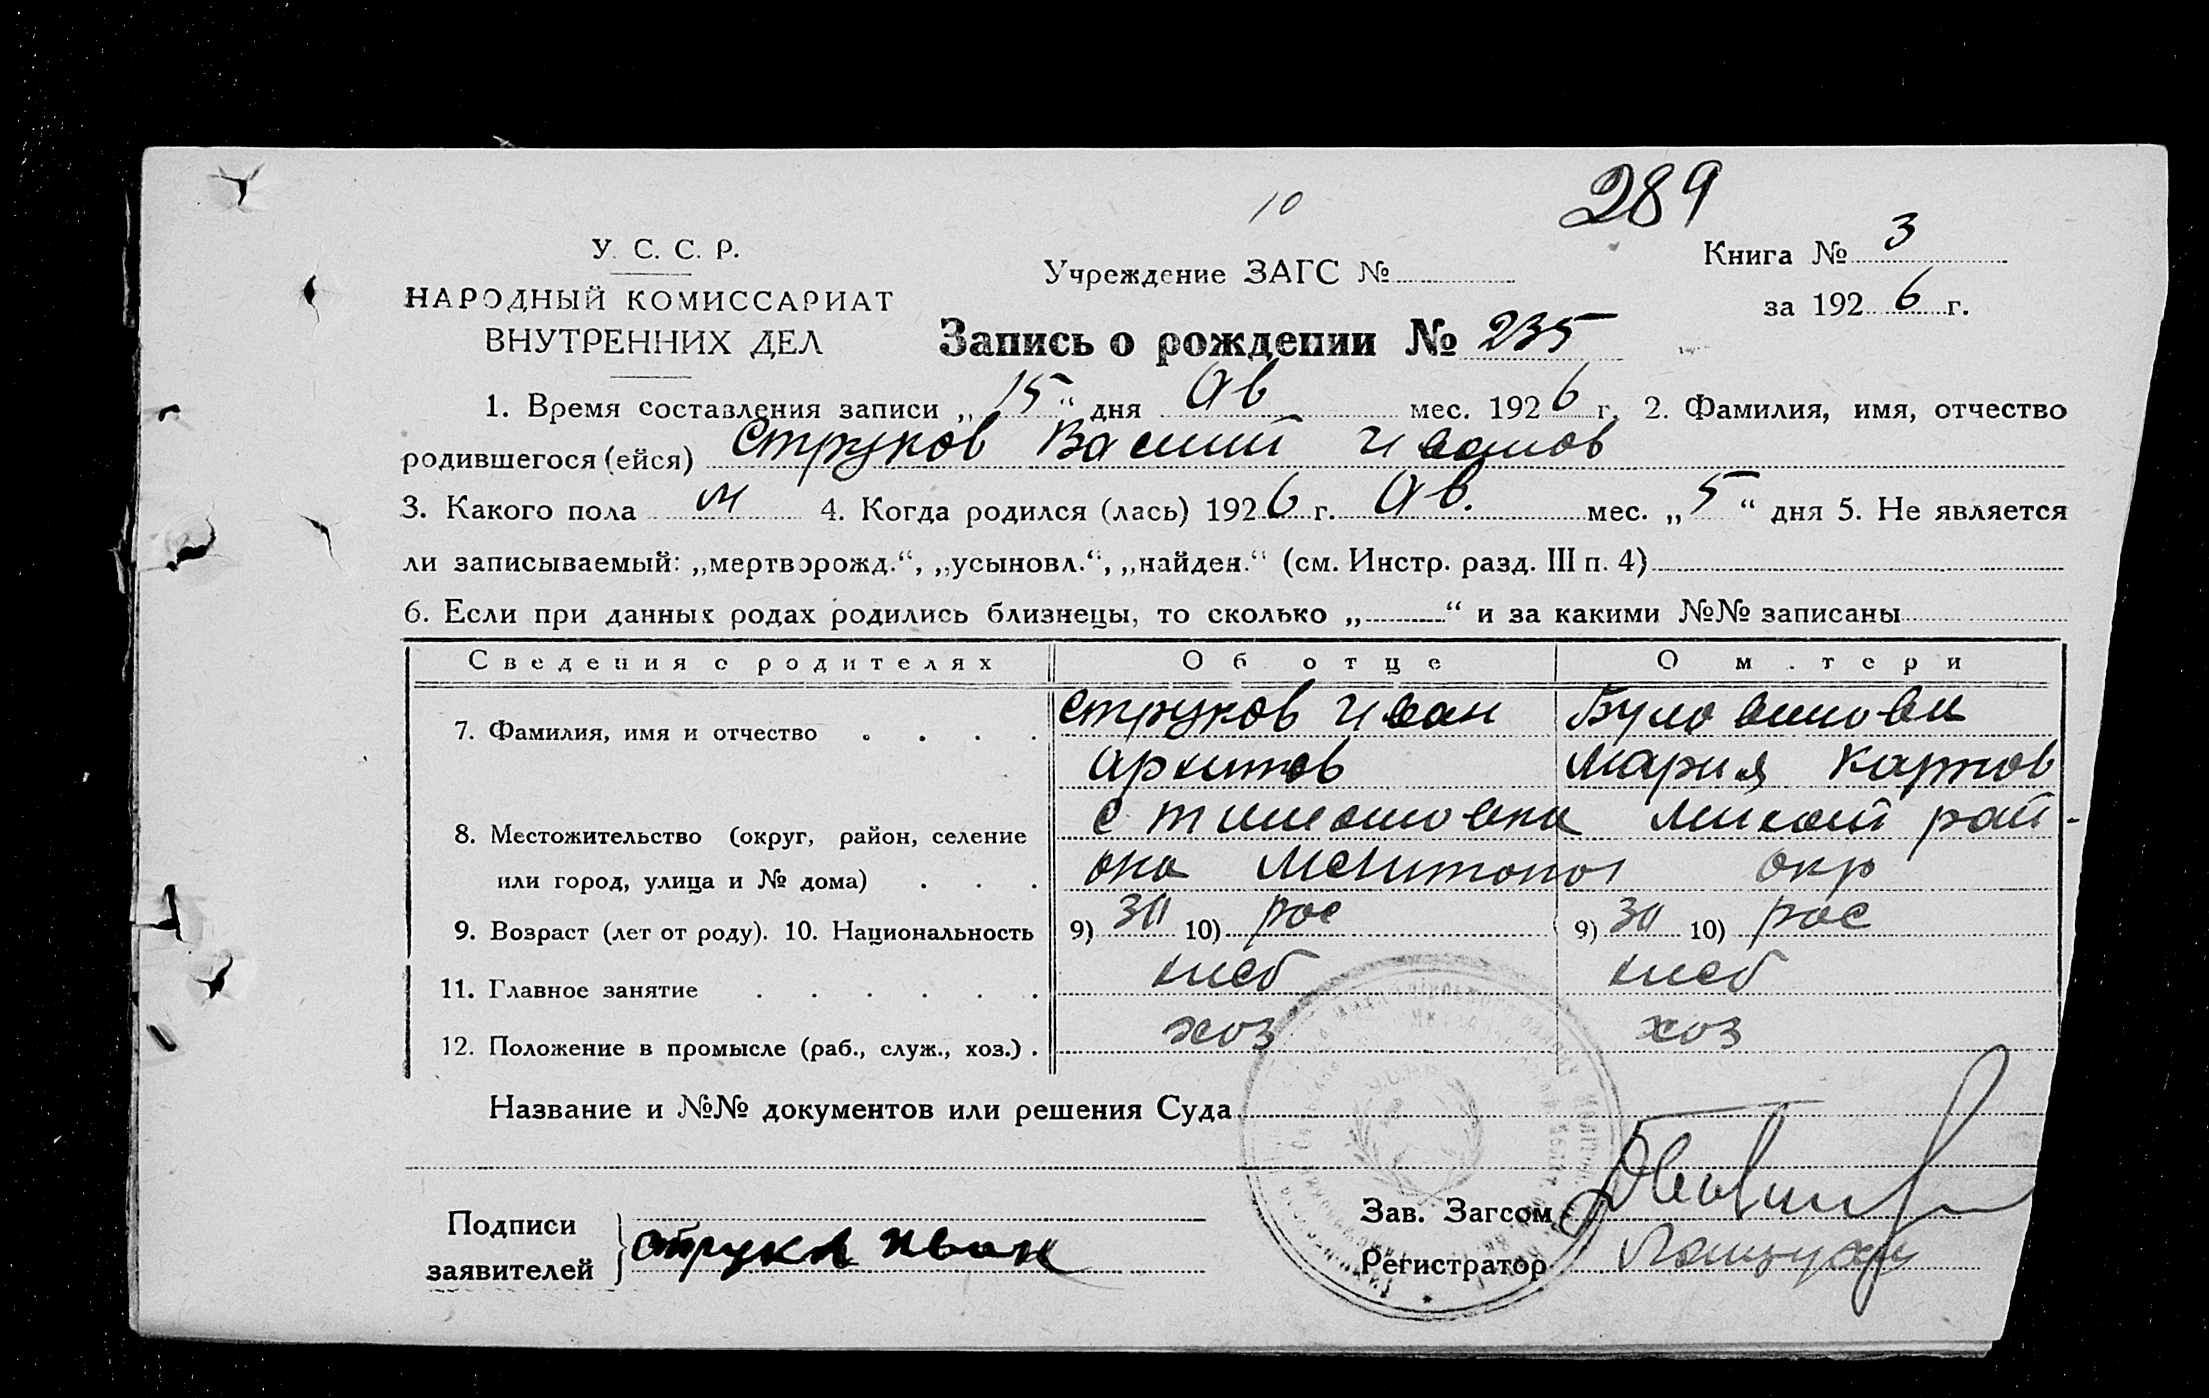 10
289
У. С. С. Р.
НАРОДНЫЙ КОМИССАРИАТ
ВНУТРЕННИХ ДЕЛ
Учреждение ЗАГС №
Книга № 3
за 1926 г.
Запись о рождении № 235
1. Время составления записи „15“ дня Ав мес. 1926 г. 2. Фамилия, имя, отчество
родившегося (ейся) Струков Василий Иванов
3. Какого пола м 4. Когда родился (лась) 1926 г. Ав. мес. „5“ дня 5. Не является
ли записываемый: „мертворожд.“, „усыновл.“, „найден.“ (см. Инстр. разд. III п. 4)
6. Если при данных родах родились близнецы, то сколько „ “ и за какими №№ записаны
Сведения о родителях Об отце О м тери
7. Фамилия, имя и отчество Струков Иван
Архипов Мария Карпов
8. Местожительство (округ, район, селение с Тимошовка рай-
или город, улица и № дома) она Мелитопол окр
9. Возраст (лет от роду). 10. Национальность 9) 30 10) рос 9) 30 10) рос
11. Главное занятие хлеб хлеб
12. Положение в промысле (раб., служ., хоз.) хоз хоз
Название и №№ документов или решения Суда
Подписи
заявителей Струков Иван
Зав. Загсом
Регистратор